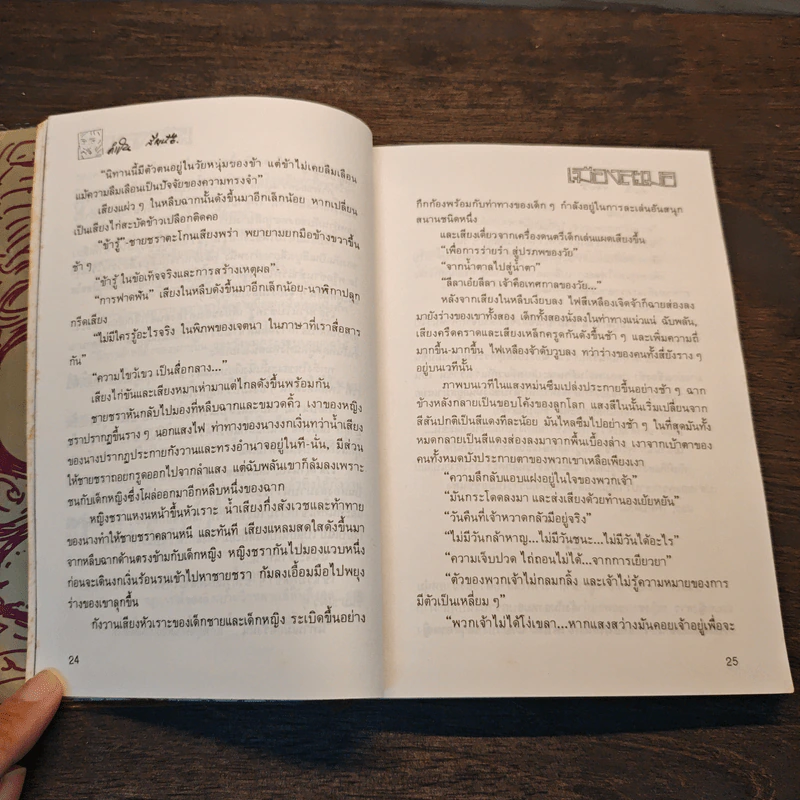 “นิทานนี้มีตัวตนอยู่ในวัยหนุ่มของข้า แต่ข้าไม่เคยลืมเลือน
แม้ความลืมเลือนเป็นปัจจัยของความทรงจำ”
เสียงแผ่ว ๆ ในหลืบฉากนั้นดังขึ้นมาอีกเล็กน้อย หากเปลี่ยน
เป็นเสียงไก่สะบัดข้าวเปลือกติดคอ
“ข้ารู้”-ชายชราตะโกนเสียงพร่า พยายามยกมือข้างขวาขึ้น
ช้า ๆ
“ข้ารู้ ในข้อเท็จจริงและการสร้างเหตุผล”-
“การฟาดฟัน” เสียงในหลืบดังขึ้นมาอีกเล็กน้อย-นาฬิกาปลุก
กรีดเสียง
“ไม่มีใครรู้อะไรจริง ในพิภพของเจตนา ในภาษาที่เราสื่อสาร
กัน”
“ความไขว้เขว เป็นสื่อกลาง...”
เสียงไก่ขันและเสียงหมาเห่ามาแต่ไกลดังขึ้นพร้อมกัน
ชายชราหันกลับไปมองที่หลืบฉากและขมวดคิ้ว เงาของหญิง
ชราปรากฏขึ้นราง ๆ นอกแสงไฟ ท่าทางของนางงกเงิ่นทว่าน้ำเสียง
ของนางปรากฏประกายกังวานและทรงอำนาจอยู่ในที-นั่น, มีส่วน
ให้ชายชราถอยกรูดออกไปจากลำแสง แต่ฉับพลันเขาก็ล้มลงเพราะ
ชนกับเด็กหญิงซึ่งโผล่ออกมาอีกหลืบหนึ่งของฉาก
หญิงชราแหงนหน้าขึ้นหัวเราะ น้ำเสียงกึ่งสังเวชและท้าทาย
ของนางทำให้ชายชราคลานหนี และทันที เสียงแหลมสดใสดังขึ้นมา
จากหลืบฉากด้านตรงข้ามกับเด็กหญิง หญิงชรากันไปมองแวบหนึ่ง
ก่อนจะเดินงกเงิ่นร้อนรนเข้าไปหาชายชรา ก้มลงเอื้อมมือไปพยุง
ร่างของเขาลุกขึ้น
กังวานเสียงหัวเราะของเด็กชายและเด็กหญิง ระเบิดขึ้นอย่าง
24
กึกก้องพร้อมกับท่าทางของเด็ก ๆ กำลังอยู่ในการละเล่นอันสนุก
สนานชนิดหนึ่ง
และเสียงเดี่ยวจากเครื่องดนตรีเด็กเล่นแผดเสียงขึ้น
“เพื่อการร่ายรำ สู่ปรภพของวัย”
“จากน้ำตาลไปสู่น้ำตา”
“ลีลาเอ๋ยลีลา เจ้าคือเทศกาลของวัย...”
หลังจากเสียงในหลืบเงียบลง ไฟสีเหลืองเจิดจ้าก็ฉายส่องลง
มายังร่างของเขาทั้งสอง เด็กทั้งสองนั่งลงในท่าทางแน่วแน่ ฉับพลัน,
เสียงครืดคราดและเสียงเหล็กครูดกันดังขึ้นช้า ๆ และเพิ่มความถี่
มากขึ้น-มากขึ้น ไฟเหลืองจ้าดับวูบลง ทว่าร่างของคนทั้งสี่ยังราง ๆ
อยู่บนเวทีนั้น
ภาพบนเวทีในแสงหม่นซึมเปล่งประกายขึ้นอย่างช้า ๆ ฉาก
ข้างหลังกลายเป็นขอบโค้งของลูกโลก แสงสีในนั้นเริ่มเปลี่ยนจาก
สีสันปกติเป็นสีแดงทีละน้อย มันไหลซึมไปอย่างช้า ๆ ในที่สุดมันทั้ง
หมดกลายเป็นสีแดงส่องลงมาจากพื้นเบื้องล่าง เงาจากเบ้าตาของ
คนทั้งหมดบังประกายตาของพวกเขาเหลือเพียงเงา
“ความลึกลับแอบแฝงอยู่ในใจของพวกเจ้า”
“มันกระโดดลงมา และส่งเสียงด้วยทำนองเย้ยหยัน”
“วันคืนที่เจ้าหวาดกลัวมีอยู่จริง”
“ไม่มีวันกล้าหาญ...ไม่มีวันชนะ...ไม่มีวันได้อะไร”
“ความเจ็บปวด ไถ่ถอนไม่ได้...จากการเยียวยา”
“ตัวของพวกเจ้าไม่กลมกลิ้ง และเจ้าไม่รู้ความหมายของการ
มีตัวเป็นเหลี่ยม ๆ”
“พวกเจ้าไม่ได้โง่เขลา...หากแสงสว่างมันคอยเจ้าอยู่เพื่อจะ
25